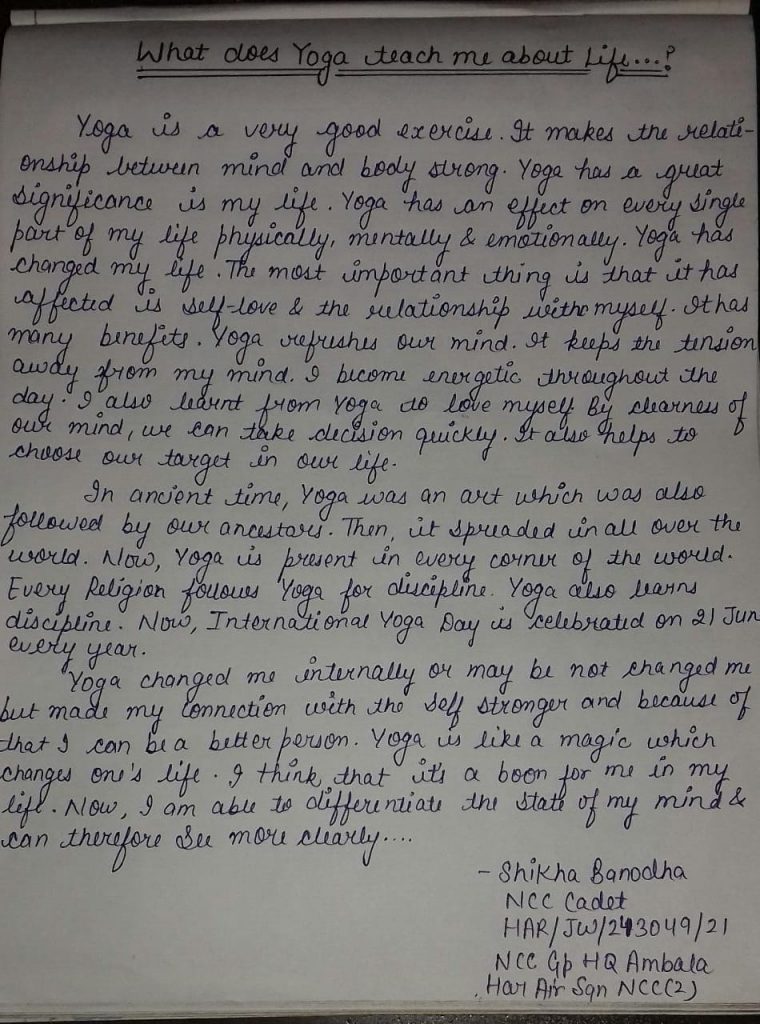 What does Yoga teach me about Life...?
Yoga is a very good exercise. It makes the relati-
onship between mind and body strong. Yoga has a great
significance is my life. Yoga has an effect on every single
part of my life physically, mentally & emotionally. Yoga has
changed my life. The most important thing is that it has
affected is self-love & the relationship with myself. It has
many benefits. Yoga refreshes our mind. It keeps the tension
away from my mind. I become energetic throughout the
day. I also learnt from Yoga to love myself By clearness of
our mind, we can take decision quickly. It also helps to
choose our target in our life.
In ancient time, Yoga was an art which was also
followed by our ancestars. Then, it spreaded in all over the
world. Now, Yoga is present in every corner of the world.
Every Religion follows Yoga for discipline. Yoga also learns
discipline. Now, International Yoga Day is celebrated on 21 Jun
every year.
Yoga changed me internally or may be not changed me
but made my connection with the self stronger and because of
that I can be a better person. Yoga is like a magic which
changes one's life. I think that it's a boon for me in my
life. Now, I am able to differentiate the state of my mind &
can therefore see more clearly....
- Shikha Banodha
NCC Cadet
HAR/JW/243049/21
NCC Gp HQ Ambala
Har Air Sqn NCC(2)